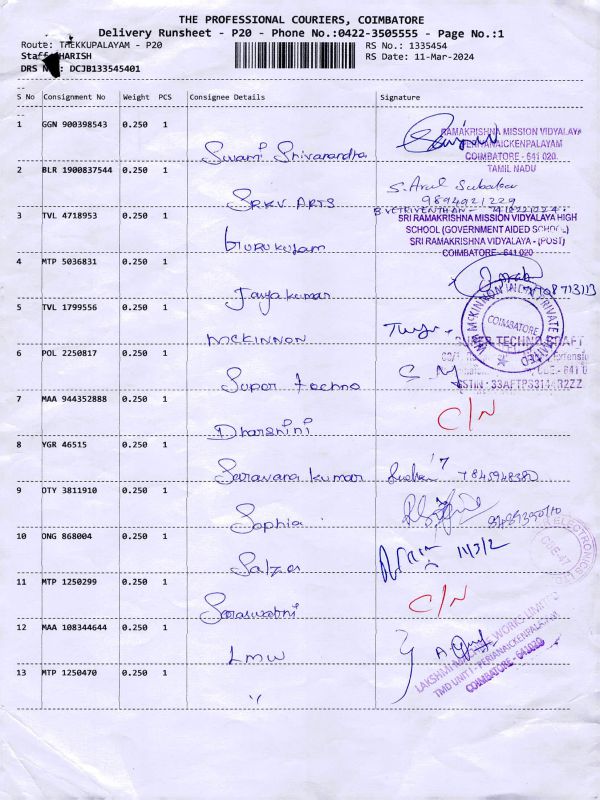 THE PROFESSIONAL COURIERS, COIMBATORE
Delivery Runsheet - P20 - Phone No.:0422-3505555 - Page No.:1
Route: THEKKUPALAYAM - P20
RS No.: 1335454
Staff: HARISH
RS Date: 11-Mar-2024
DRS No.: DCJB133545401
S No Consignment No Weight PCS Consignee Details Signature
1 GGN 900398543 0.250 1
Swami Shivanandha
RAMAKRISHNA MISSION VIDYALAYA
PERIANAICKENPALAYAM
COIMBATORE - 641 020.
TAMIL NADU
2 BLR 1900837544 0.250 1
SRKV ARTS
S. Arul
9894921229
3 TVL 4718953 0.250 1
Gurukulam
SRI RAMAKRISHNA MISSION VIDYALAYA HIGH
SCHOOL (GOVERNMENT AIDED SCHOOL)
SRI RAMAKRISHNA VIDYALAYA - (POST)
COIMBATORE - 641 020
4 MTP 5036831 0.250 1
Jayakumar
5 TVL 1799556 0.250 1
MCKINNON
COIMBATORE
6 POL 2250817 0.250 1
Super techno
SUPER TECHNO CRAFT
GSTIN : 33AFTPS3144R2ZZ
7 MAA 944352888 0.250 1
Dharshini
C/N
8 YGR 46515 0.250 1
Saravana kumar
9 DTY 3811910 0.250 1
Sophia
10 ONG 868004 0.250 1
Salzer
11/3/2
11 MTP 1250299 0.250 1
Saraswathi
C/N
12 MAA 108344644 0.250 1
LMW
LAKSHMI MACHINE WORKS LIMITED
TMD UNIT I - PERIANAICKENPALAYAM
COIMBATORE - 641020
13 MTP 1250470 0.250 1
"